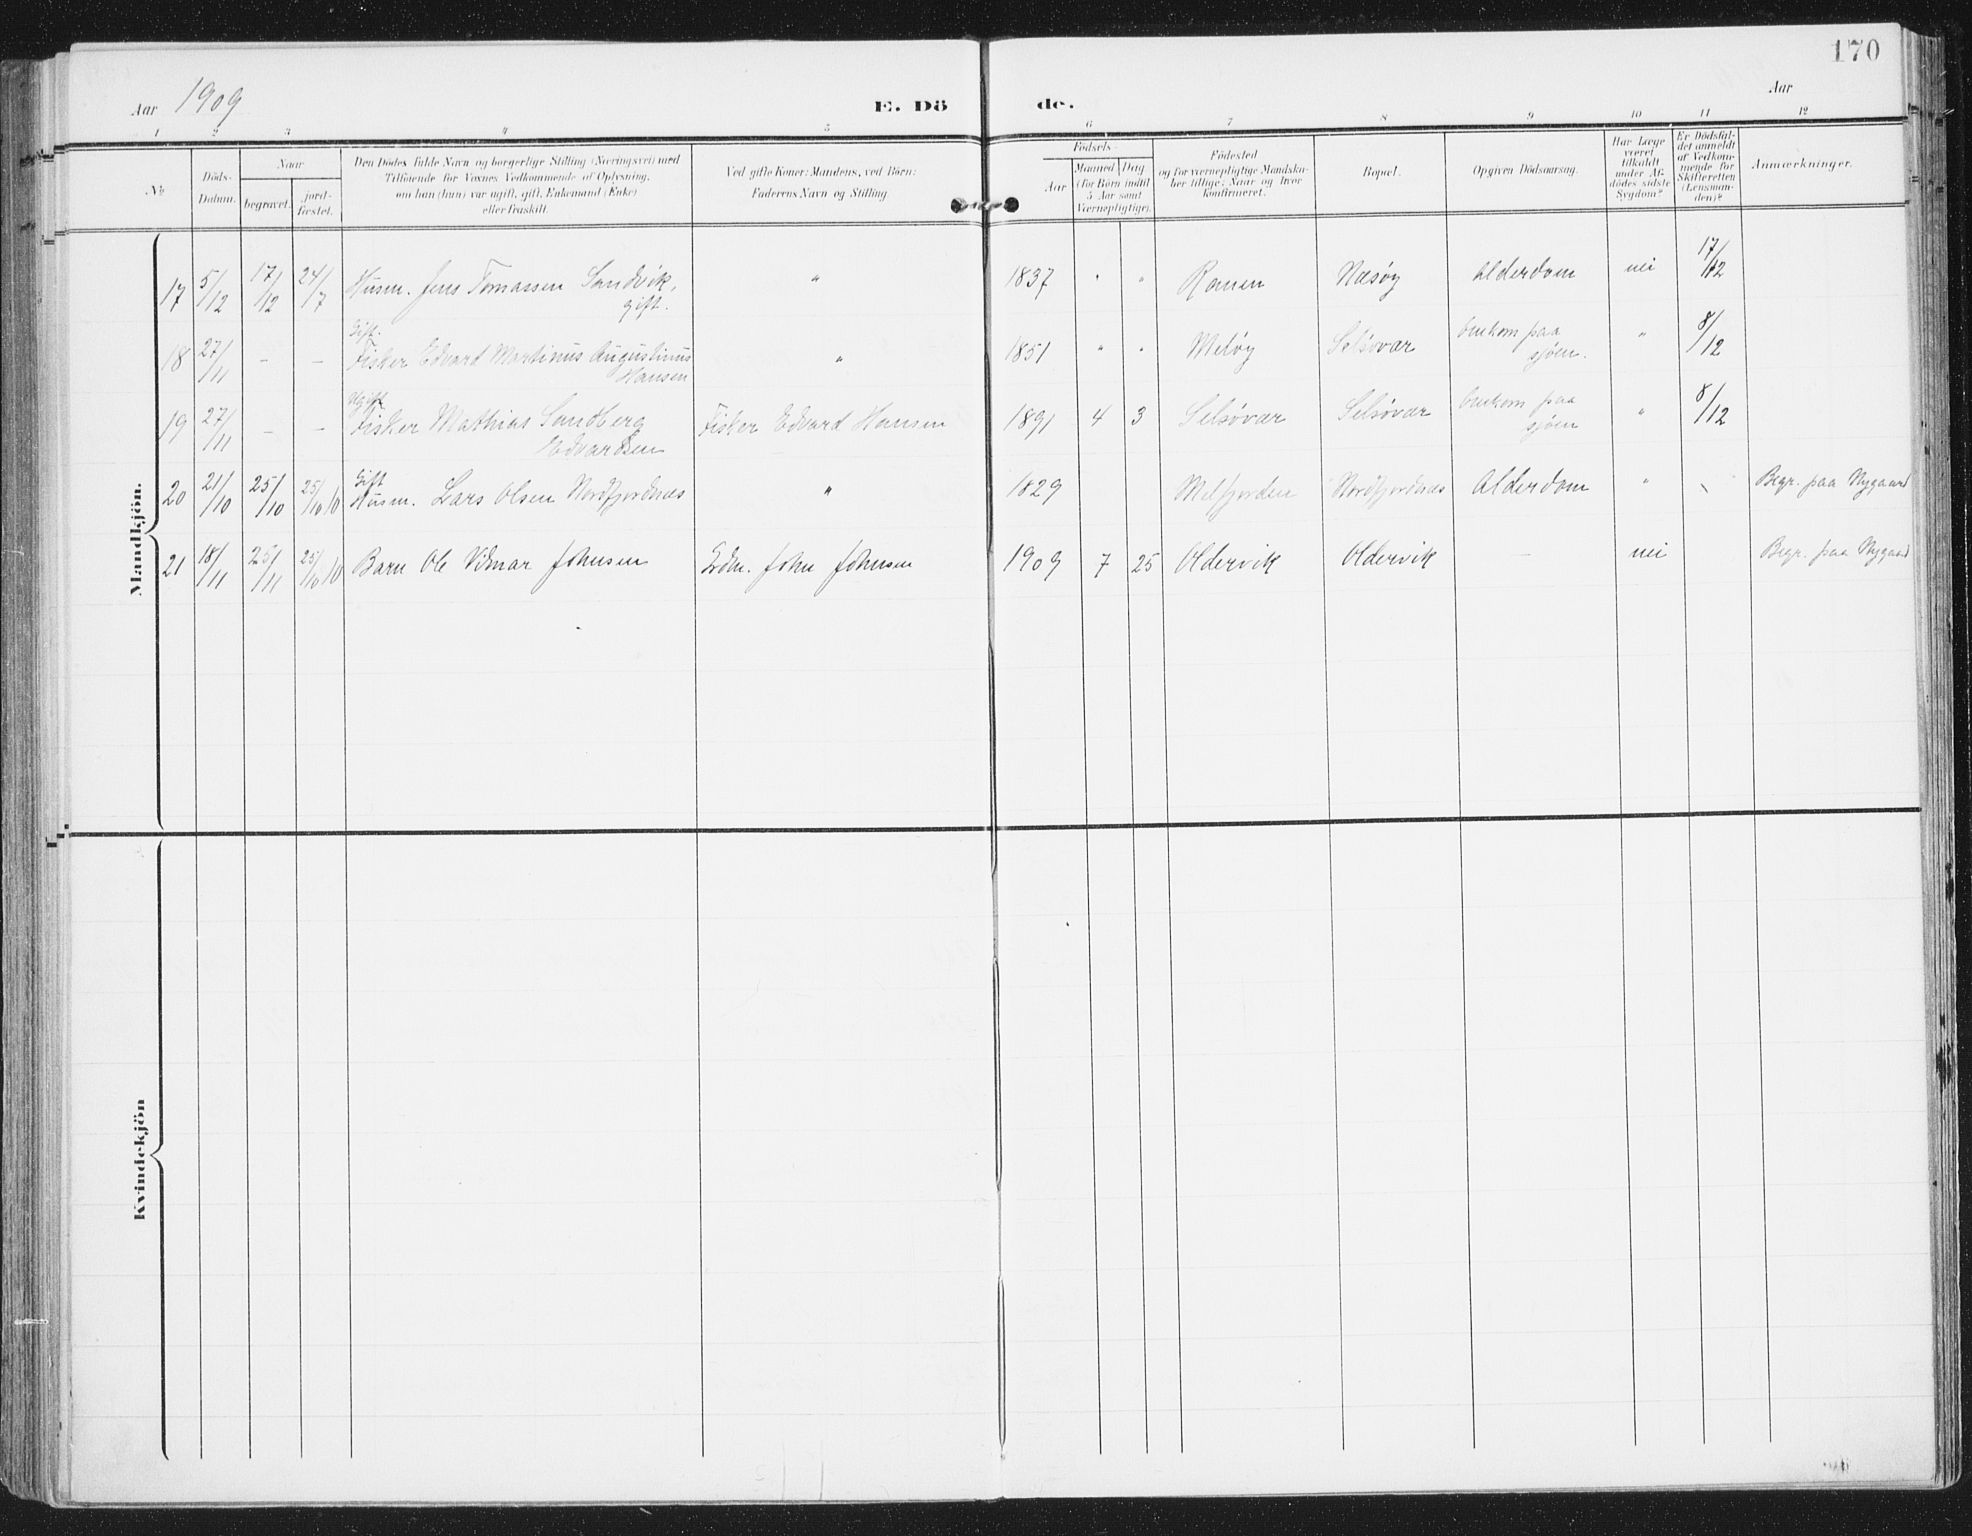 170
Aar 1909
E. Dö de.
Aar
1 2 3 4 5 6 7 8 9 10 11 12
No.
Döds-Datum.
Naar
begravet.
jord-fæstet.
Den Dödes fulde Navn og borgerlige Stilling (Næringsvei) med
Tilföiende for Voxnes Vedkommende af Oplysning,
om han (hun) var ugift, gift, Enkemand (Enke)
eller fraskilt.
Ved gifte Koner: Mandens, ved Börn:
Faderens Navn og Stilling.
Födsels-
Aar
Maaned Dag
(for Börn indtil
5 Aar samt
Værnepligtige).
Födested
og for værnepligtige Mandska-
ber tillige: Naar og hvor
konfirmeret.
Bopæl.
Opgiven Dödsaarsag.
Har Læge
været
tilkaldt
under Af-
dödes sidste
Sygdom?
Er Dödsfal-
det anmeldt
af Vedkom-
mende for
Skifteretten
(Lensman-
den)?
Anmærkninger.
Mandkjön.
17 5/12 17/12 24/7 Husm. Jens Tomassen Sandvik, gift. " 1837 " " Næsøy Alderdom nei 17/12
18 27/11 - - Gift. Fisker Edvard Martinus Augustinus Hansen " 1851 " " Meløy Selsøvær omkom paa sjøen. " 8/12
19 27/11 - - Ugift Fisker Mathias Sandberg Edvardsen Fisker Edvard Hansen 1891 4 3 Selsøvær Selsøvær omkom paa sjøen " 8/12
20 21/10 25/10 25/10 10 Gift Husm. Lars Olsen Nordfjordnæs " 1829 Melfjorden Nordfjordnæs Alderdom " Begr. paa Nygaard
21 18/11 25/11 25/10 10 Barn Ole Vilmar Johnsen John Johnsen 1909 7 25 Oldervik Oldervik — nei Begr. paa Nygaard
Kvindekjön